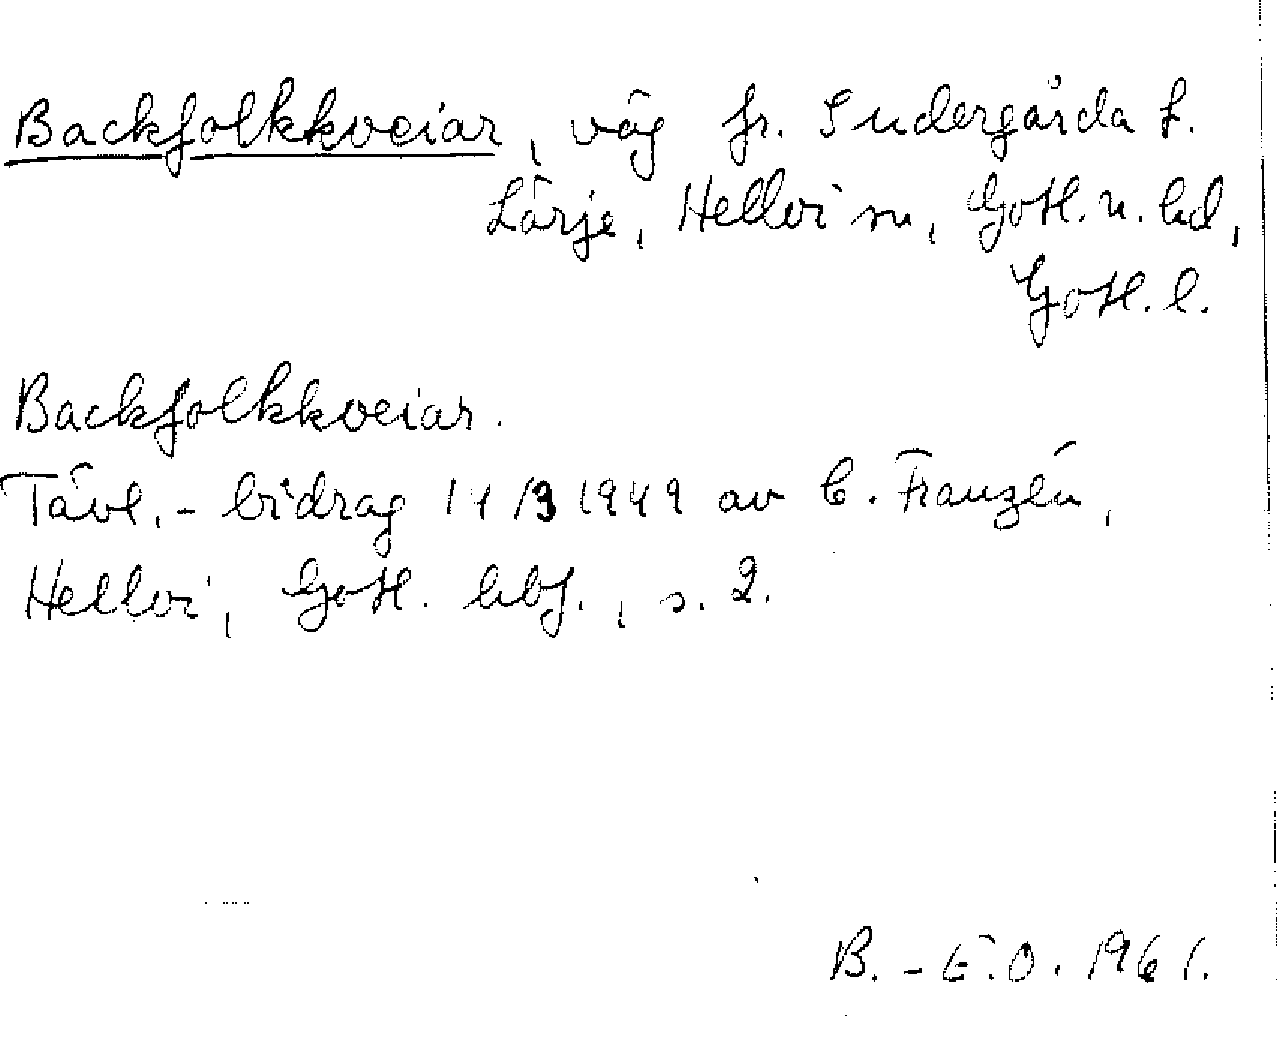 Backfolkkveiar, väg fr. Sudergårda t.
Lärje, Hellvi sn, Gotl. n. hd,
Gotl. l.
Backfolkkveiar.
Tävl.-bidrag 14/3 1949 av C. Franzén,
Hellvi, Gotl. hbf., s. 2.
B.-E.O. 1961.